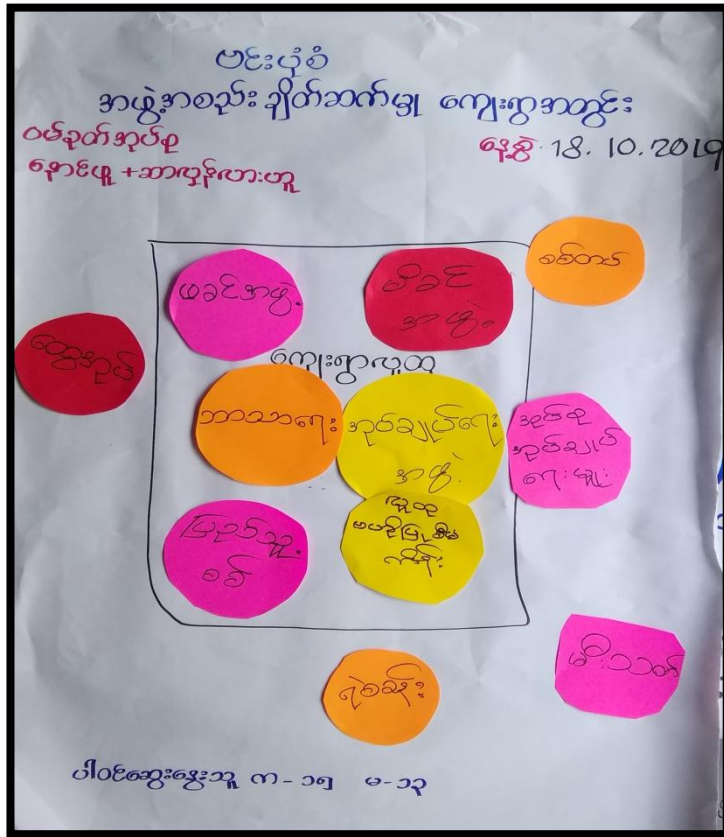 ဗင်းပုံစံ
အဖွဲ့အစည်း ချိတ်ဆက်မှု ကျေးရွာအတွင်း
ဝမ်ခုတ်အုပ်စု
နောင်ယူ + ဆာလှန်လားဟူ
နေ့စွဲ. 18. 10. 2019
စစ်တပ်
ဖခင်အဖွဲ့
မိခင်
အဖွဲ့
ထွေအုပ်
ကျေးရွာလူထု
ဘာသာရေး
အုပ်ချုပ်ရေး
အဖွဲ့
အုပ်စု
အုပ်ချုပ်
ရေးမှူး
ပြည်သူ့
စစ်
လူထု
ကိန်း
မီးသတ်
ရဲစခန်း
ပါဝင်ဆွေးနွေးသူ က - ၁၅ မ - ၁၃